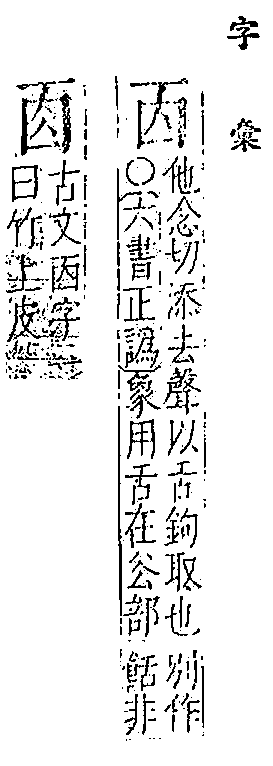 字彙
㐁
他念切添去聲以舌鉤取也
○六書正譌象用舌在谷部
別作
餂非
古文㐁字
曰竹上皮